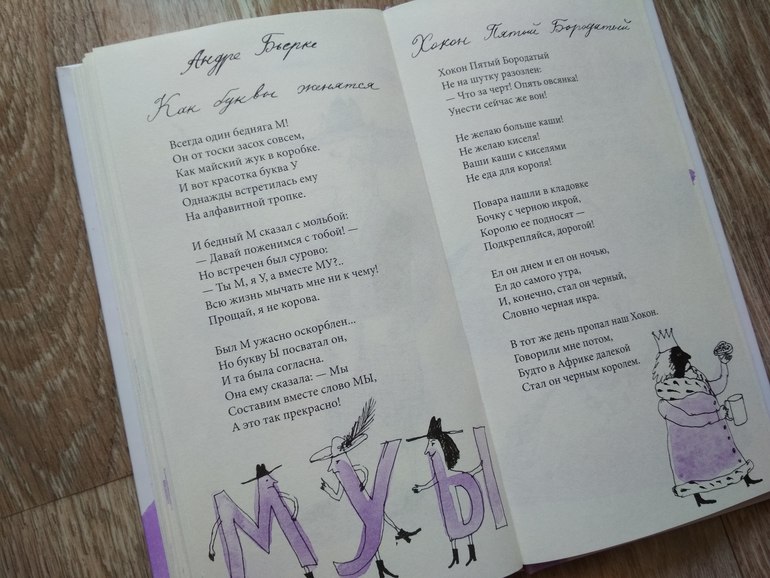 Андре Бьерке
Как буквы женятся
Всегда один бедняга М!
Он от тоски засох совсем,
Как майский жук в коробке.
И вот красотка буква У
Однажды встретилась ему
На алфавитной тропке.
И бедный М сказал с мольбой:
— Давай поженимся с тобой! —
Но встречен был сурово:
— Ты М, я У, а вместе МУ?..
Всю жизнь мычать мне ни к чему!
Прощай, я не корова.
Был М ужасно оскорблен...
Но букву Ы посватал он,
И та была согласна.
Она ему сказала: — Мы
Составим вместе слово МЫ,
А это так прекрасно!
М У Ы
Хокон Пятый Бородатый
Хокон Пятый Бородатый
Не на шутку разозлен:
— Что за черт! Опять овсянка!
Унести сейчас же вон!
Не желаю больше каши!
Не желаю киселя!
Ваши каши с киселями
Не еда для короля!
Повара нашли в кладовке
Бочку с черною икрой,
Королю ее подносят —
Подкрепляйся, дорогой!
Ел он днем и ел он ночью,
Ел до самого утра,
И, конечно, стал он черный,
Словно черная икра.
В тот же день пропал наш Хокон.
Говорили мне потом,
Будто в Африке далекой
Стал он черным королем.